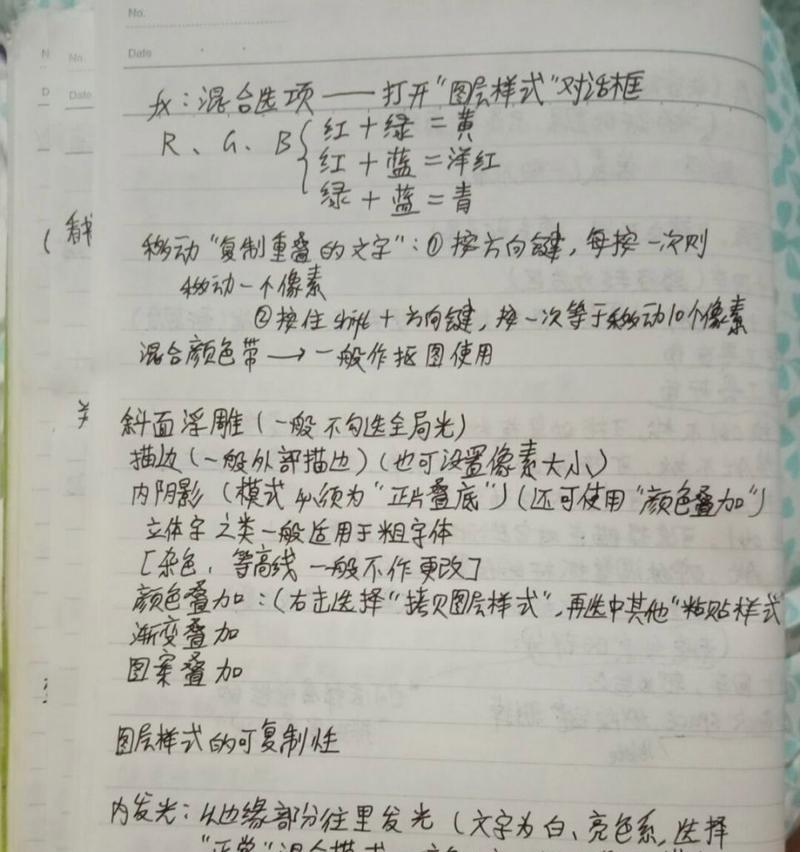 No.
Date
fx：混合选项 —— 打开"图层样式"对话框
R、G、B { 红＋绿＝黄
红＋蓝＝洋红
绿＋蓝＝青
移动"复制重叠的文字"：① 按方向键，每按一次则
移动一个像素
② 按住shift＋方向键，按一次等于移动10个像素
混合颜色带 → 一般作抠图使用
斜面浮雕（一般不勾选全局光）
描边（一般外部描边）（也可设置像素大小）
内阴影（模式必须为"正片叠底"）（还可使用"颜色叠加"）
立体字之类一般适用于粗字体
[杂色，等高线 一般不作更改]
颜色叠加：（右击选择"拷贝图层样式"，再选中其他"粘贴样式
渐变叠加
图案叠加
图层样式的可复制性
内发光：从边缘部分往里发光（文字为白、亮色系，选择
"正常"混合模式